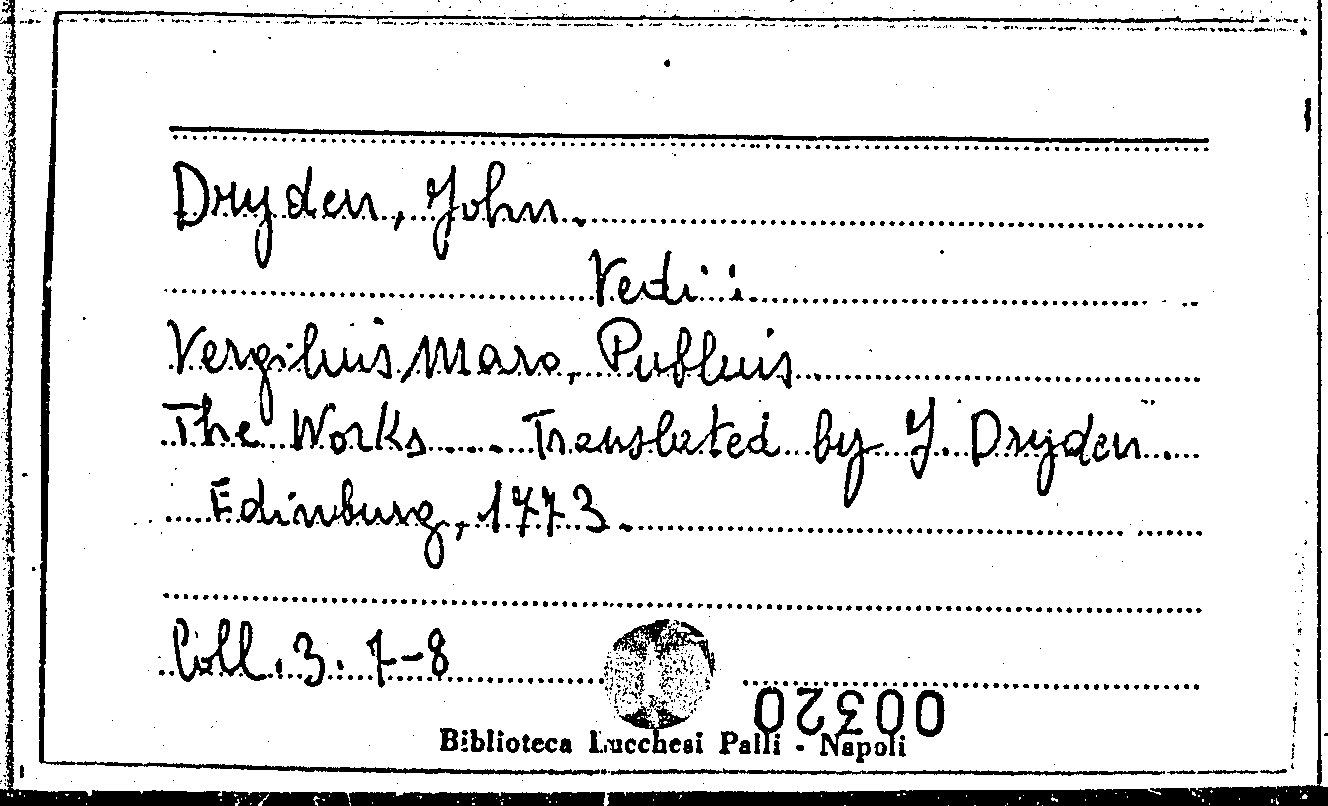 Dryden, John.
Vedi:
Vergilius Maro, Publius.
The Works.... Translated by J. Dryden.
Edinburg, 1773.
Coll. 3. 7-8
00320
Biblioteca Lucchesi Palli - Napoli